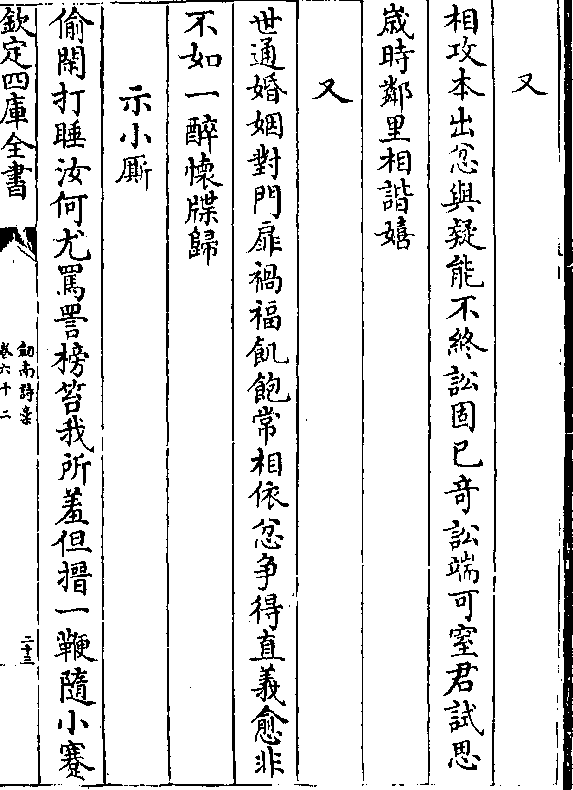 又
相攻本出忿與疑能不終訟固已奇訟端可窒君試思
歳時鄰里相諧嬉
又
世通婚姻對門扉禍福飢飽常相依忿争得直義愈非
不如一醉懷牒歸
示小厮
偷閑打睡汝何尤罵詈榜笞我所羞但搢一鞭隨小蹇
欽定四庫全書
劒南詩藁
卷六十二
二十三